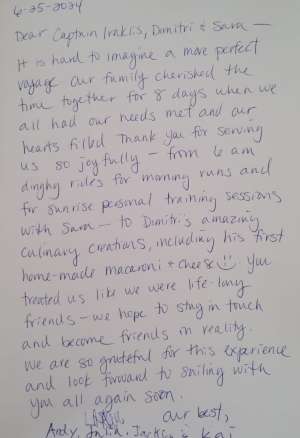 6-25-2024
Dear Captain Iraklis, Dimitri & Sara —
It is hard to imagine a more perfect
voyage. Our family cherished the
time together for 8 days when we
all had our needs met and our
hearts filled. Thank you for serving
us so joyfully — from 6 am
dinghy rides for morning runs and
for sunrise personal training sessions
with Sara — to Dimitri's amazing
culinary creations, including his first
home-made macaroni & cheese ☺ You
treated us like we were life-long
friends — we hope to stay in touch
and become friends in reality.
We are so grateful for this experience
and look forward to sailing with
you all again soon.
Our best,
Andy, Julia, Jackson & Kai